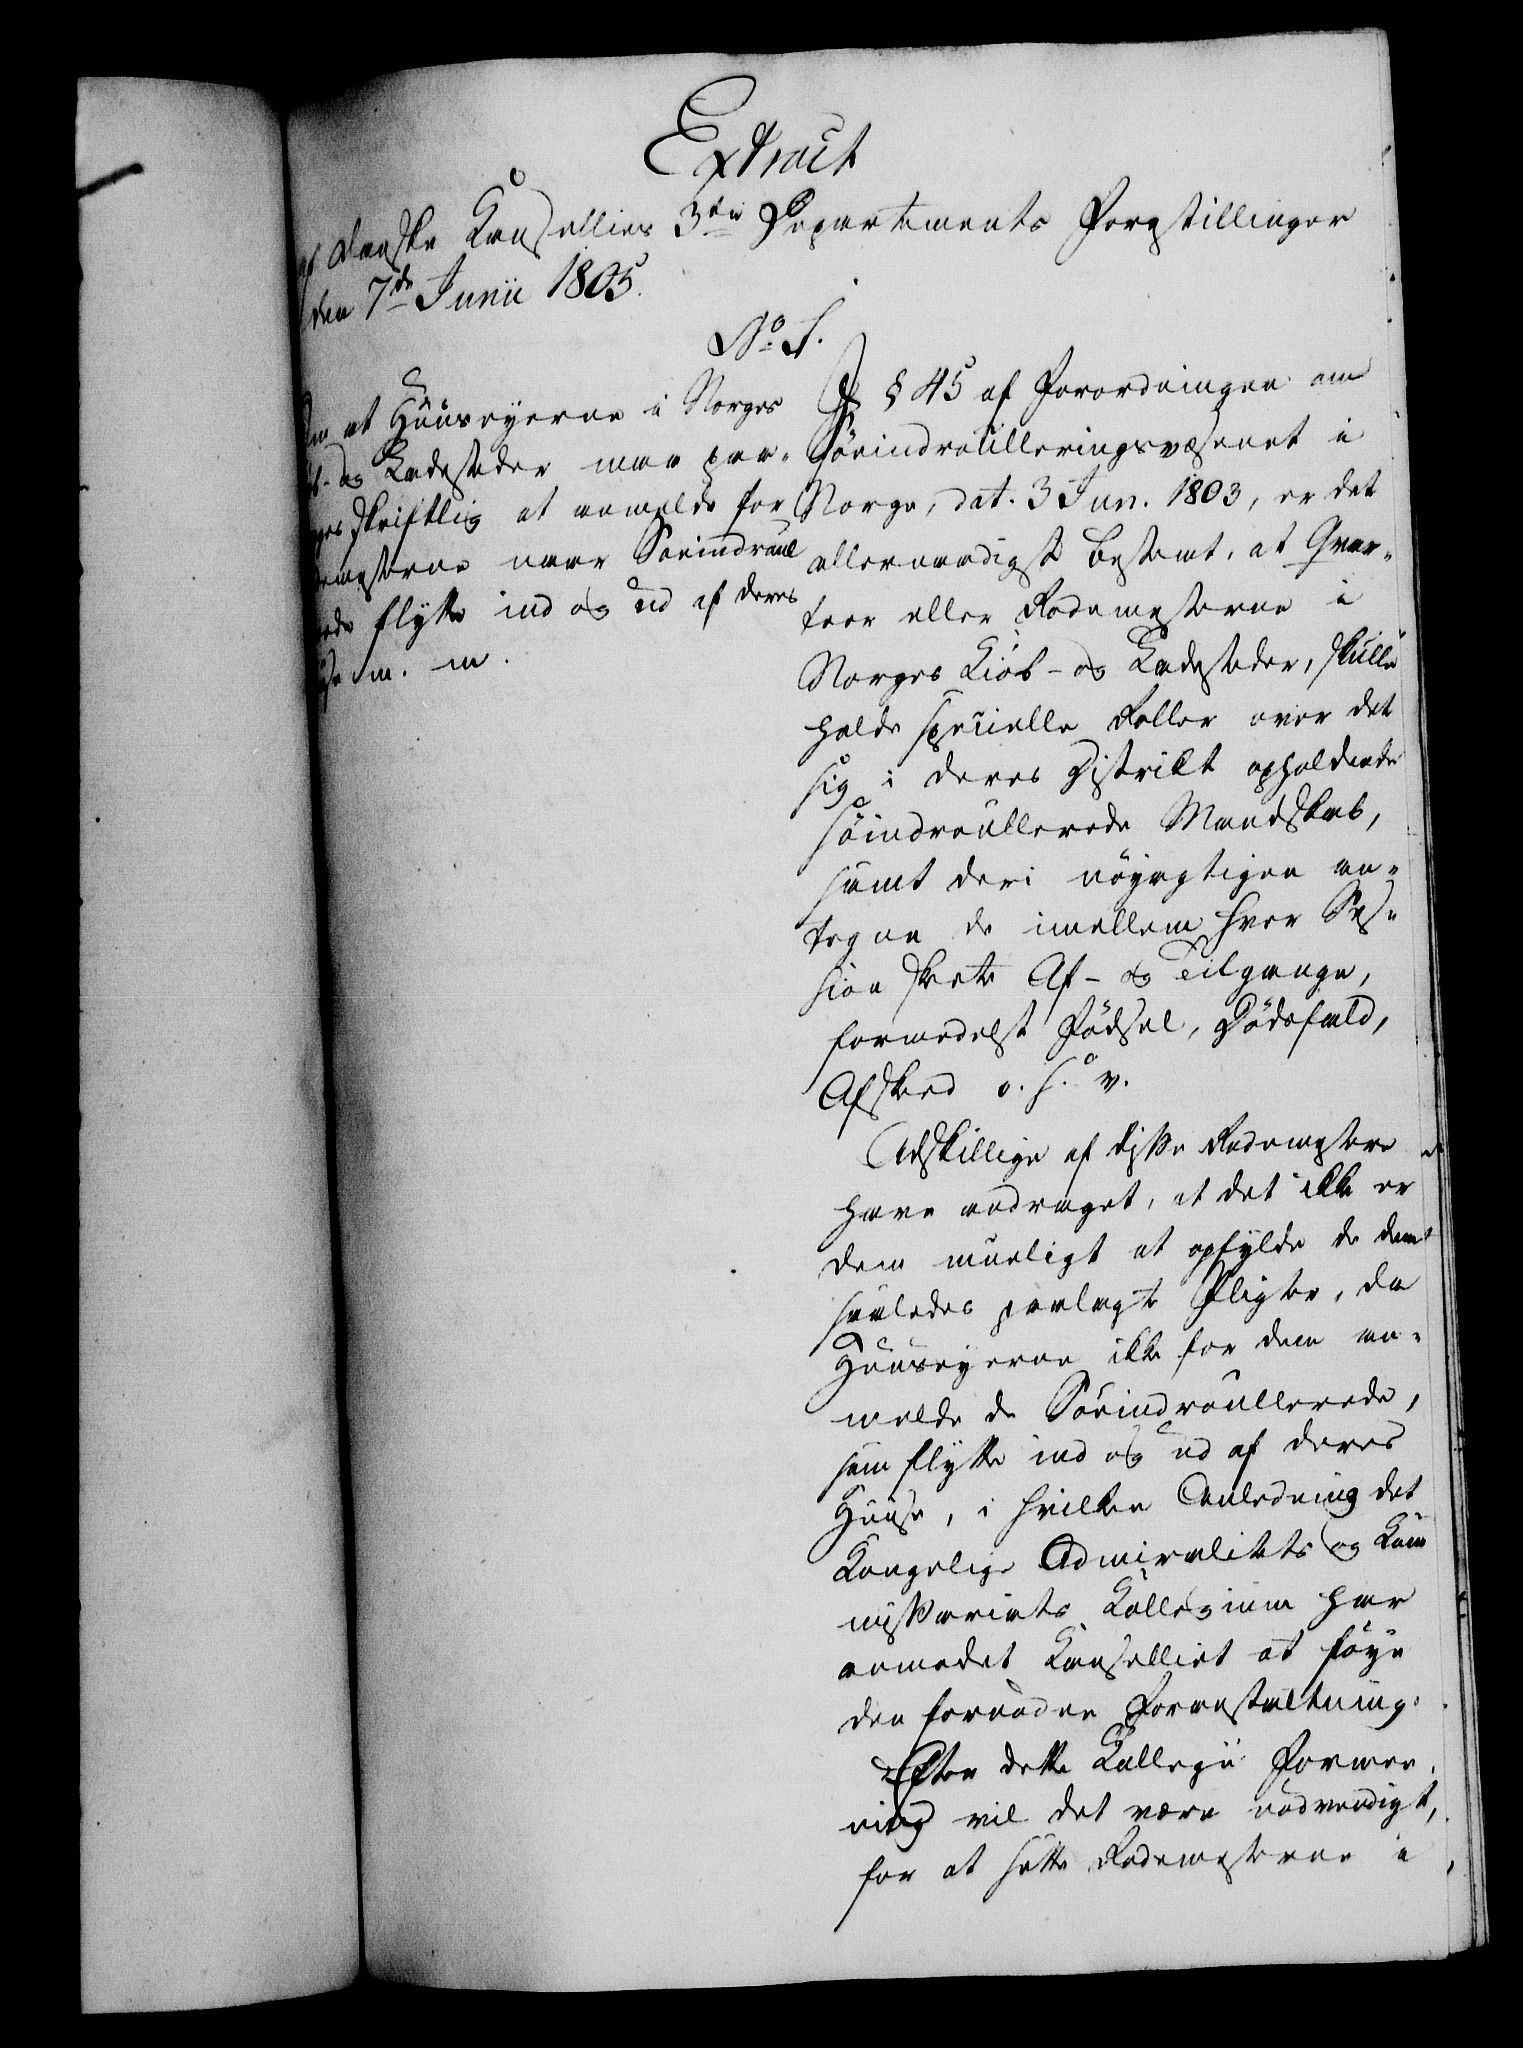 Extract
af Danske Kanselliets 3die Departements Forestillinger
den 7de Junii 1805.
No 1.
Om at Huuseyerne i Norges
og Ladesteder maa paa-
skriftlig at anmelde for
naar Söeindroul
flytte ind og ud af deres
m. m.
I § 45 af Forordningen om
Söeindroulleringsvæsenet i
Norge, dat. 3 Jun. 1803, er det
allernaadigst bestemt, at Qvar-
teer eller Rodemesterne i
Norges Kiöb- og Ladesteder, skulle
holde specielle Roller over det
sig i deres District opholdende
söindroullerede Mandskab,
samt deri nöyagtigen an-
tegne de imellem hver Ses-
sion skete Af- og Tilgange,
formedelst Födsel, Dödsfald,
Afskeed o. s. v.
Adskillige af disse Rodemestere
have andraget, at det ikke er
dem mueligt at opfylde de dem
saaledes paalagte Pligter, da
Huuseyerne ikke for dem an-
melde de Söeindroullerede,
som flytte ind og ud af deres
Huuse, i hvilken Anledning det
Kongelige Admiralitets og Kom
missariats Kollegium har
anmodet Kanselliet at föye
den fornödne Foranstaltning.
Efter dette Kollegii Formee-
ning vil det være nödvendigt,
for at sætte Rodemesterne i